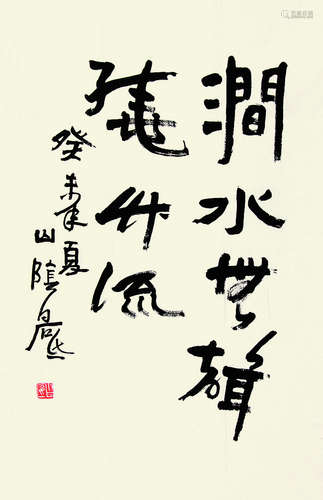 澗水無聲
繞竹流
癸未年夏山陰